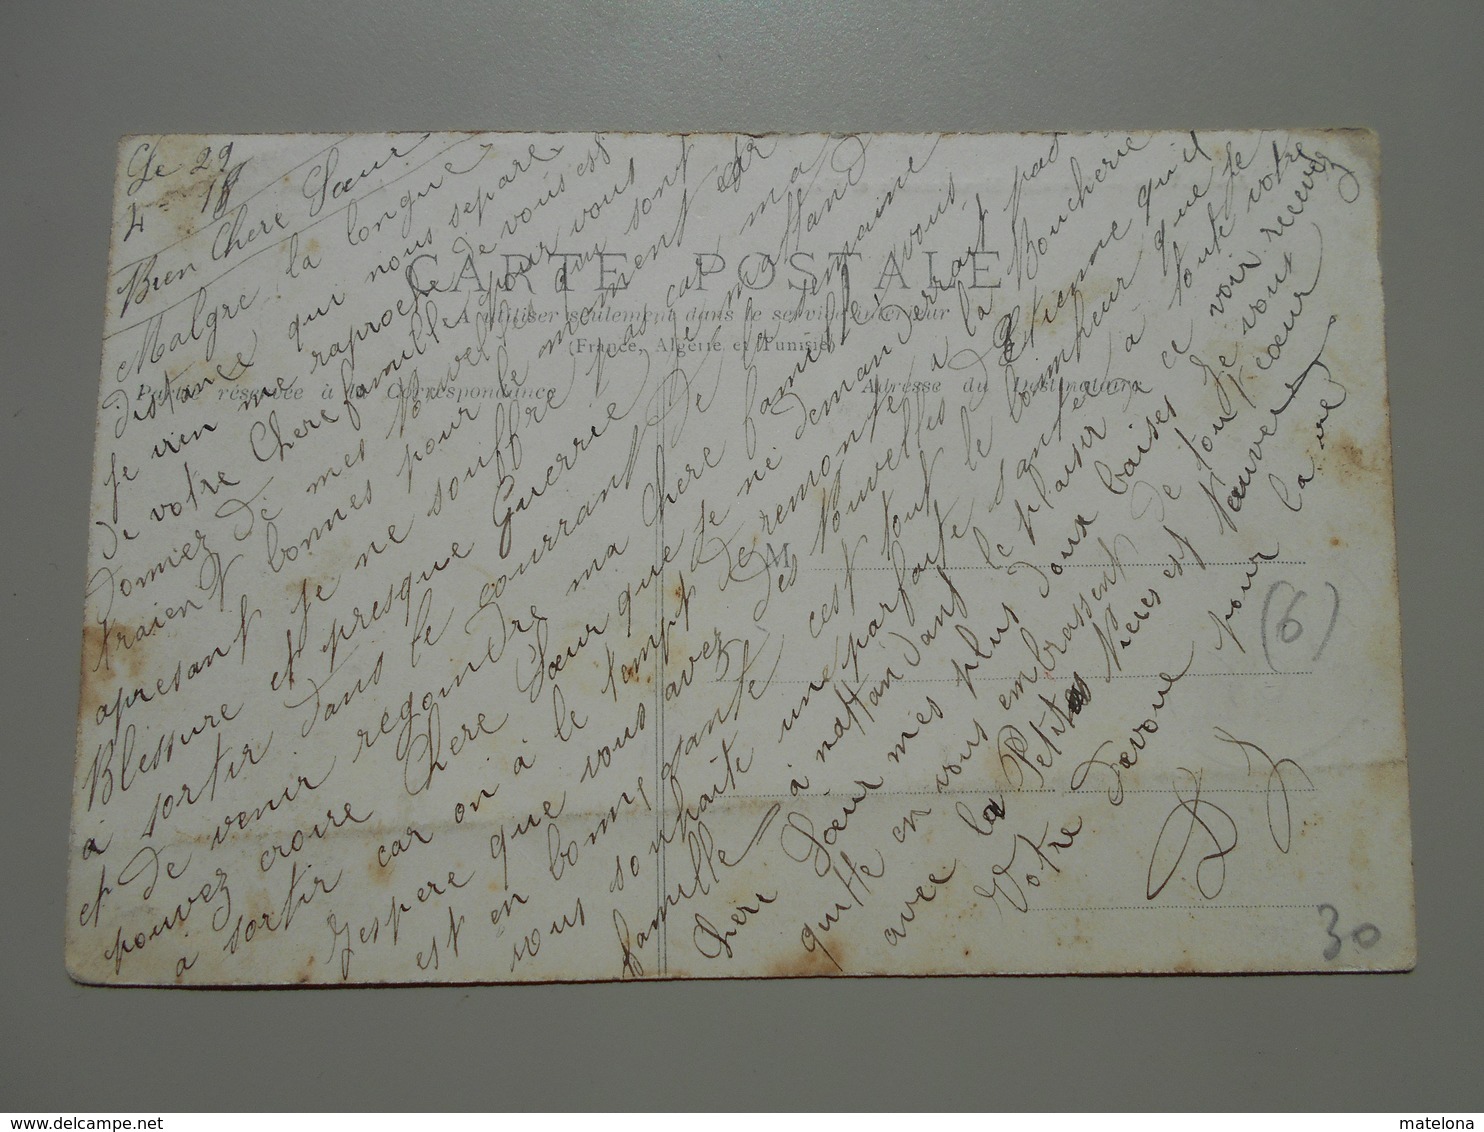 Le 29
4 = 18
Bien Chere Sœur
Malgre la longue
distance qui nous separe
Je vien me raprocher de vous
de votre Chere famille pour vous
donnez de mes Nouvelles qui sont
traient bonnes pour le moment car
apresant Je ne souffre pas car ma
Blessure et presque Guerrie Je mattand
à sortir dans le courrant de la semaine
et de venir regoindre ma Chere famille vous
pouvez croire Chere Sœur que Je ne demanderait pas
à sortir car on à le temp de remonte à la Boucherie
Jespere que vous avez des Nouvelles d Etienne qu il
est en bonne santé cest tout le bonheur que Je
vous souhaite une parfaite santée à toute votre
famille à nattandant le plaisir a ce voir recevez
Chere Sœur mes plus doux baises Je vous
quitte en vous embrassent de tout cœur
avec la Petites Nieces est Neuveux
Votre Devoué pour la vie
CARTE POSTALE
A utiliser seulement dans le service intérieur
(France, Algérie et Tunisie)
Partie réservée à la Correspondance
Adresse du Destinataire
M
(6)
30
matelona
delcampe.net